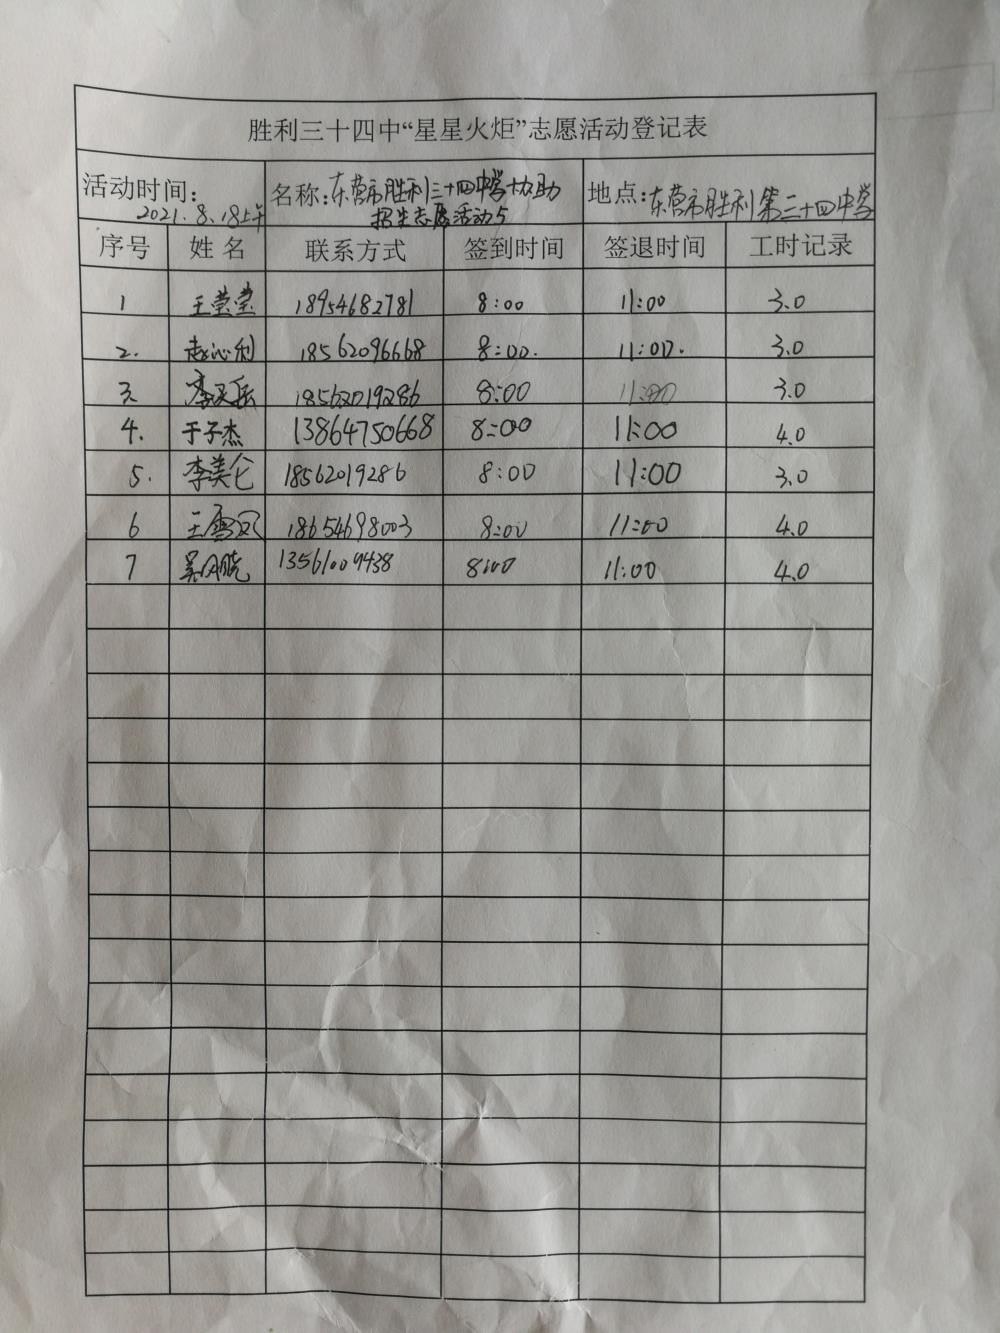 胜利三十四中“星星火炬”志愿活动登记表
活动时间: 2021.8.18上午 名称:东营市胜利三十四中学协助招生志愿活动5 地点:东营市胜利第三十四中学
序号 姓名 联系方式 签到时间 签退时间 工时记录
1 王莹莹 18954682781 8:00 11:00 3.0
2. 赵沁利 18562096668 8:00. 11:00. 3.0
3. 18562019286 8:00 11:00 3.0
4. 于子杰 13864750668 8:00 11:00 4.0
5. 李美仑 18562019286 8:00 11:00 3.0
6 王雪凤 18654698003 8:00 11:00 4.0
7 13561009438 8:00 11:00 4.0